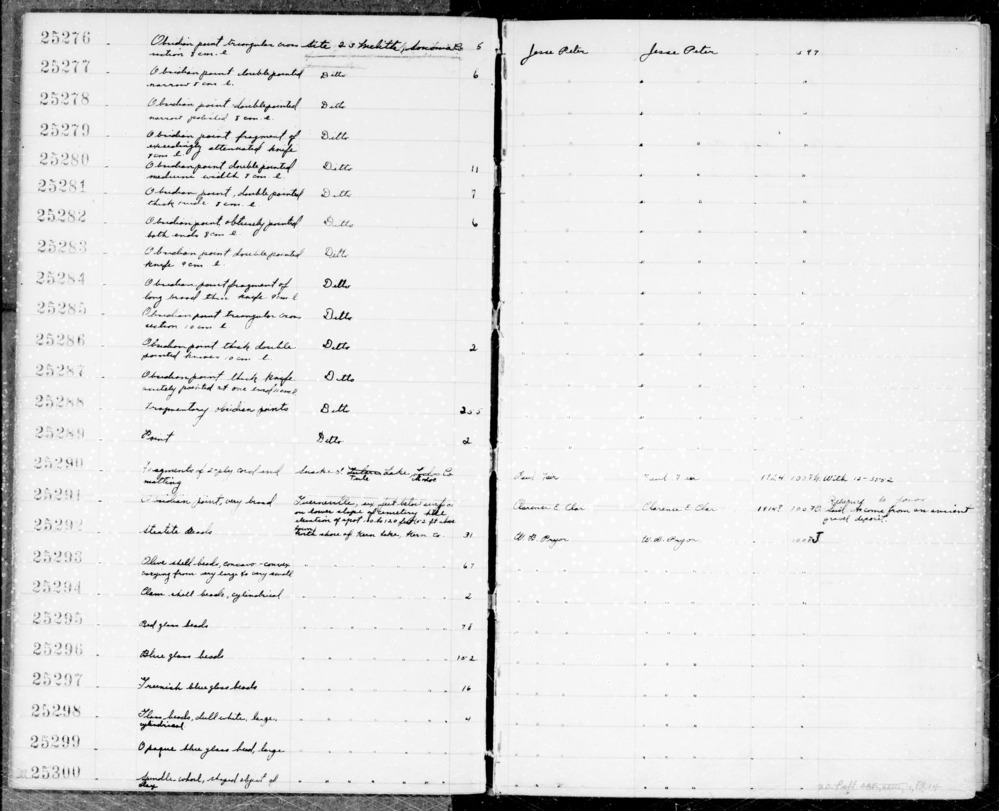 25276 Obsidian point triangular cross site 23 Sonoma Co 5 Jesse Peter Jesse Peter 597
section 8 cm. l
25277 Obsidian point double pointed Ditto 6 " "
narrow 8 cm l.
25278 Obsidian point double pointed Ditto " "
narrow 8 cm. l
25279 Obsidian point fragment of Ditto " "
exceedingly attenuated knife
9 cm l
25280 Obsidian point double pointed Ditto 11 " "
medicine width 8 cm. l
25281 Obsidian point, double pointed Ditto 7 " "
thick 8 cm. l
25282 Obsidian point obtusely pointed Ditto 6 " "
both ends 8 cm. l
25283 Obsidian point double pointed Ditto " "
knife 9 cm l
25284 Obsidian point fragment of Ditto " "
long broad thin knife 9 cm l
25285 Obsidian point triangular cross Ditto " "
section 10 cm l
25286 Obsidian point thick double Ditto 2 " "
pointed knives 10 cm l.
25287 Obsidian point thick knife Ditto " "
acutely pointed at one end
25288 Fragmentary obsidian points Ditto 255 " "
25289 Point Ditto 2 " "
25290 Fragments of 2 ply cord and Lake, Co Paul Paul 1924 With 12-3552
matting Tule Modoc
25291 Obsidian point, very broad Guerneville, six feet below surface Clarence E. Clarence E. said to come from an ancient
on lower slope of cemetery hill gravel deposit
elevation of spot 110 to 120 feet
25292 Steatite beads North shore of Kern Lake, Kern Co. 31 W. B. Pryor W. B. Pryor
25293 Olive shell beads, concavo-convex 67
varying from very large to very small
25294 Clam shell beads, cylindrical 2
25295 Red glass beads 78
25296 Blue glass beads 102
25297 Greenish blue glass beads 16
25298 Glass beads, dull white, large, 4
cylindrical
25299 Opaque blue glass bead, large
25300 Spindle whorl, shaped object of